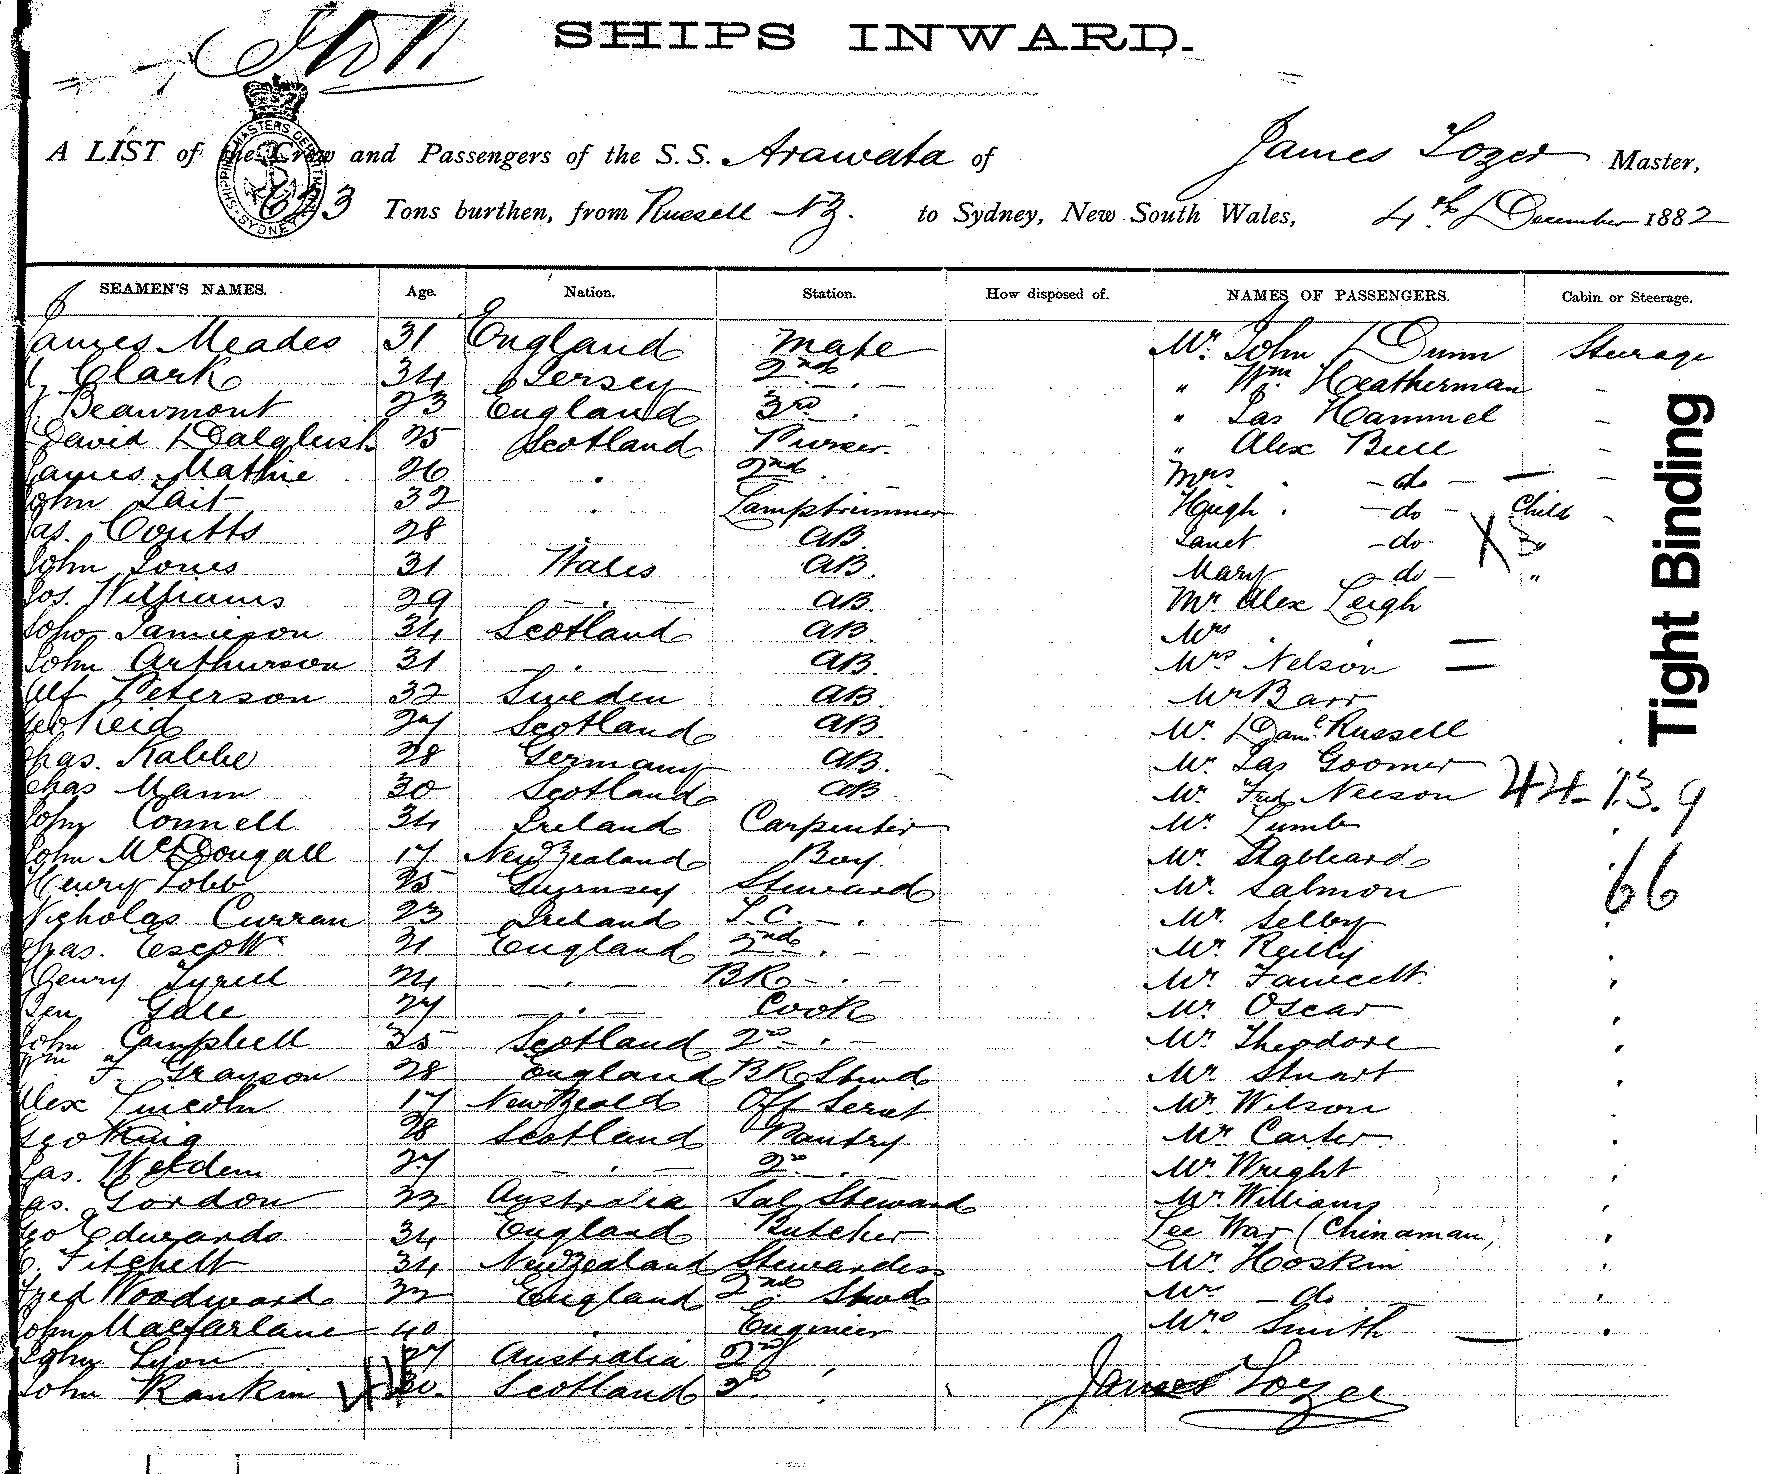 SHIPS INWARD.
A LIST of the Crew and Passengers of the S.S. Arawata of James Lozer Master,
Tons burthen, from Russell NZ. to Sydney, New South Wales, 4th December 1882
SEAMEN'S NAMES. Age. Nation. Station. How disposed of. NAMES OF PASSENGERS. Cabin or Steerage.
James Meades 31 England Mate Mr. John Dunn Steerage
Clark 34 Jersey 2nd " Wm Heatherman
Beaumont 23 England 3rd " Jas Hammel
David Dalglish 25 Scotland Purser " Alex Bull
James Mathie 26 " 2nd Mrs - do -
John Tait 32 " Lamptrimmer Hugh - do - Child
Jas. Coutts 28 AB Janet - do - X Do
John Jones 31 Wales AB. Mary - do - "
Jos. Williams 29 - " - AB. Mr Alex Leigh
John Jamieson 34 Scotland AB. Mrs "
John Arthurson 31 - " - AB. Mrs Nelson
Alf Peterson 32 Sweden AB Mr Barr
Geo Reid 27 Scotland AB. Mr. Danl Russell
Chas. Rabbe 28 Germany AB. Mr. Jas Goomer
Chas Mann 30 Scotland AB Mr. Fred Nelson 44-13.9
John Connell 34 Ireland Carpenter Mr Lumb
John McDougall 17 New Zealand Boy. Mr. Stabbard 66
Henry Lobb 25 Guernsey Steward Mr. Salmon
Nicholas Curran 23 Ireland S.C. - " Mr. Selby
Chas. Escott 21 England 2nd " - Mr Reilly
Henry Tyrell 24 - " - BK - " - Mr Fawcett
Ben Gale 27 - " - Cook Mr Oscar
John Campbell 35 Scotland 2nd " - Mr Theodore
Wm F. Grayson 28 England BK Stwd Mr Stuart
Alex Lincoln 17 New Zeald Off Servt Mr. Wilson
Geo King 28 Scotland Pantry Mr Carter
Jas. Weldem 27 - " - 2nd " Mr. Wright
Jas. Gordon 22 Australia Sal Steward Mr Williams
Geo Edwards 34 England Butcher Lee War (Chinaman)
Fitchett 34 New Zealand Stewardess Mr. Hoskin
Fred Woodward 22 England 2nd Stwd Mr - do
John Macfarlane 40 " Engineer Mrs Smith
John Lyon 27 Australia 2nd "
John Rankin 30. Scotland 3d. " James Lozer
Tight Binding